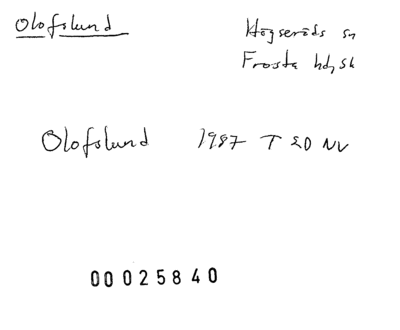 Olofslund
Högseröds sn
Frosta hd, Sk
Olofslund 1987 T 20 NV
00 025840